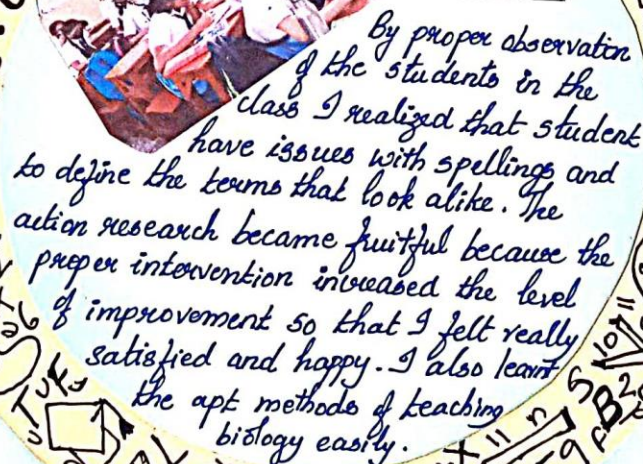 By proper observation
of the students in the
class I realized that student
have issues with spellings and
to define the terms that look alike. The
action research became fruitful because the
proper intervention increased the level
of improvement so that I felt really
satisfied and happy. I also learnt
the apt methods of teaching
biology easily.